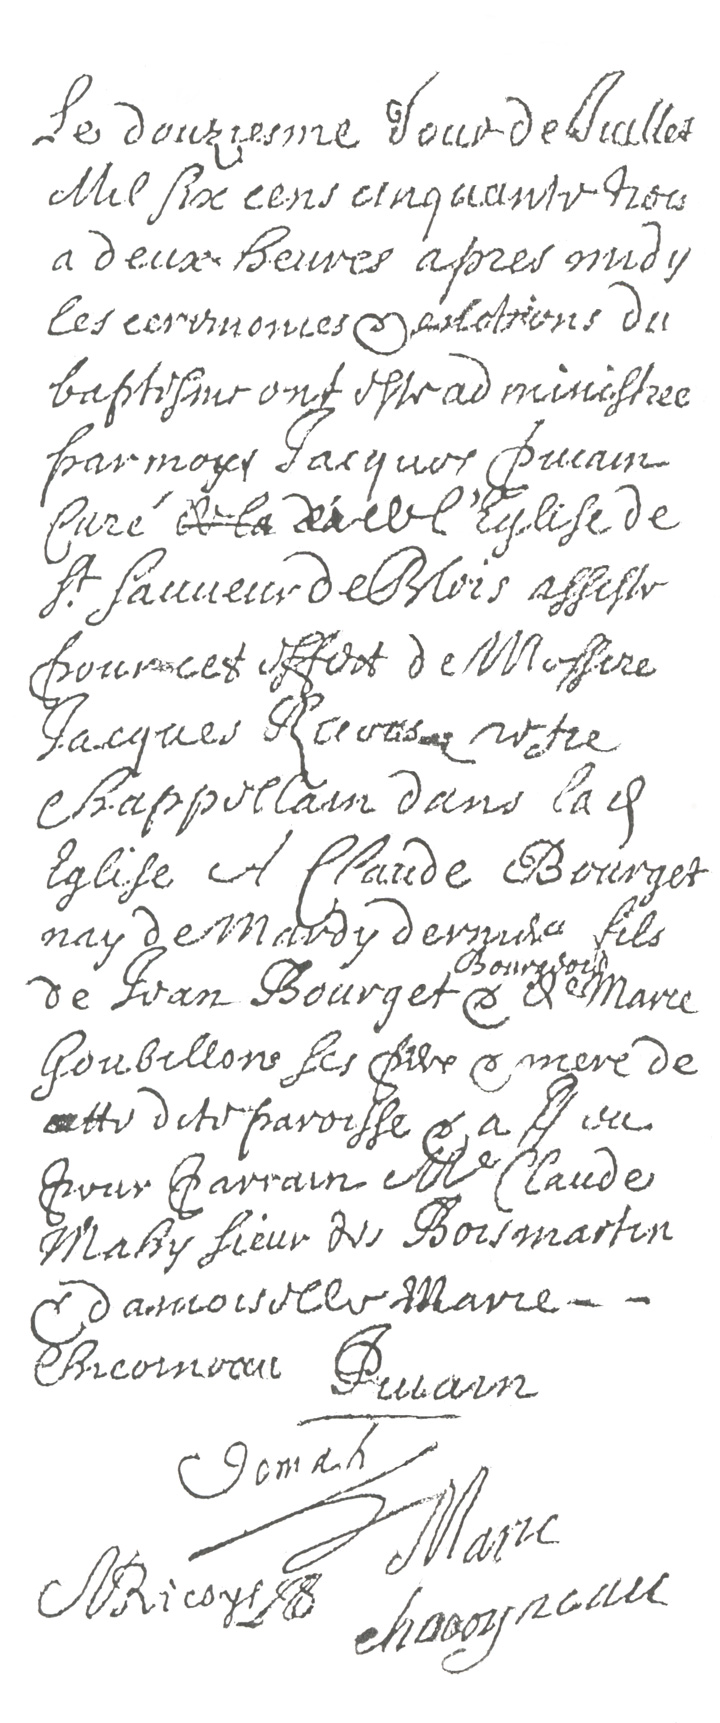 Le douziesme Jour de Juillet
Mil six cens cinquante trois
a deux heures apres midy
les ceremonies & du
baptisme ont esté administree
par moy Jacques Pinain
Curé de la de l'Eglise de
St Sauveur de Blois assisté
pour cet effect de Messire
Jacques nostre
chappellain dans lad
Eglise A Claude Bourget
nay de Mardy dernier fils
de Jean Bourget & de Marie
Bourgeois
Goubillons ses pere & mere de
cette dite paroisse & a Eu
pour parrain Me Claude
Mahy sieur des Boismartin
& damoiselle Marie - -
Chicoineau Pinain
Marie
chicoyneau